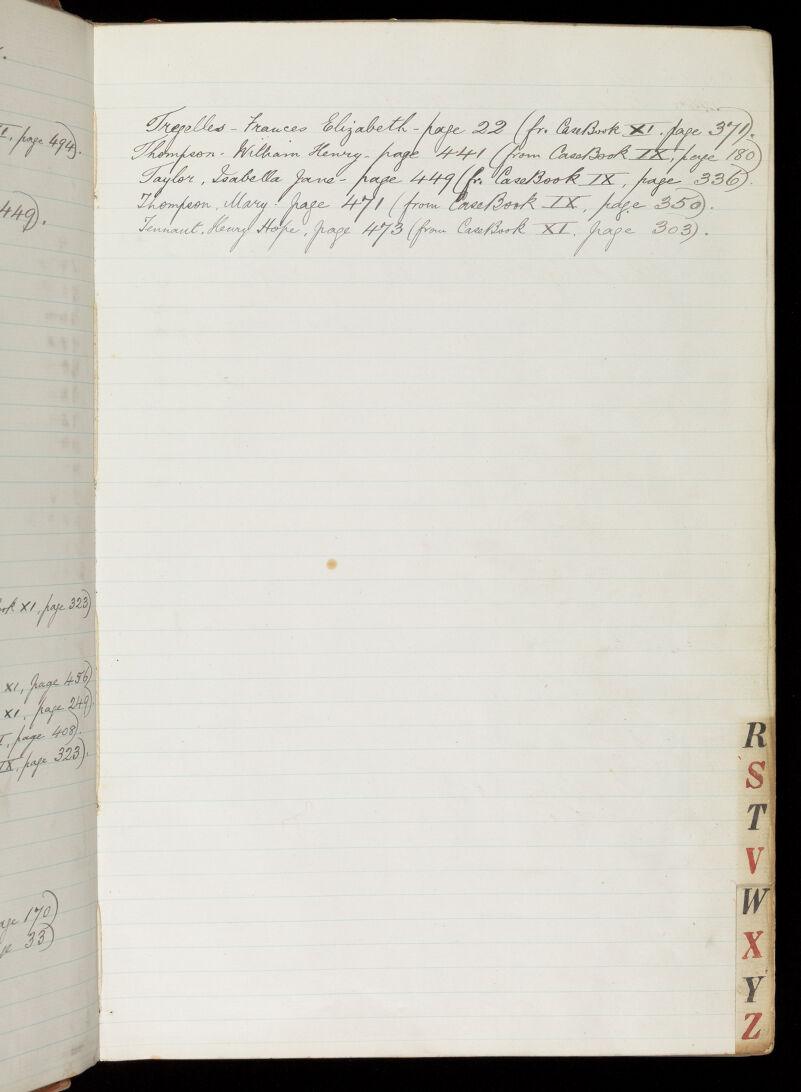 , page 494).
449).
XI, page 323)
XI, page 456)
XI, page 249)
, page 408).
IX, page 323).
170)
33)
Tregelles - Frances Elizabeth - page 22 (fr. CaseBook XI, page 371).
Thompson - William Henry - page 441 (from CaseBook IX, page 180)
Taylor, Isabella Jane - page 449 (fr. CaseBook IX, page 336).
Thompson, Mary - page 471 (from CaseBook IX, page 350).
Tennant, Henry Hope, page 473 (from CaseBook XI, page 303).
R
S
T
V
W
X
Y
Z